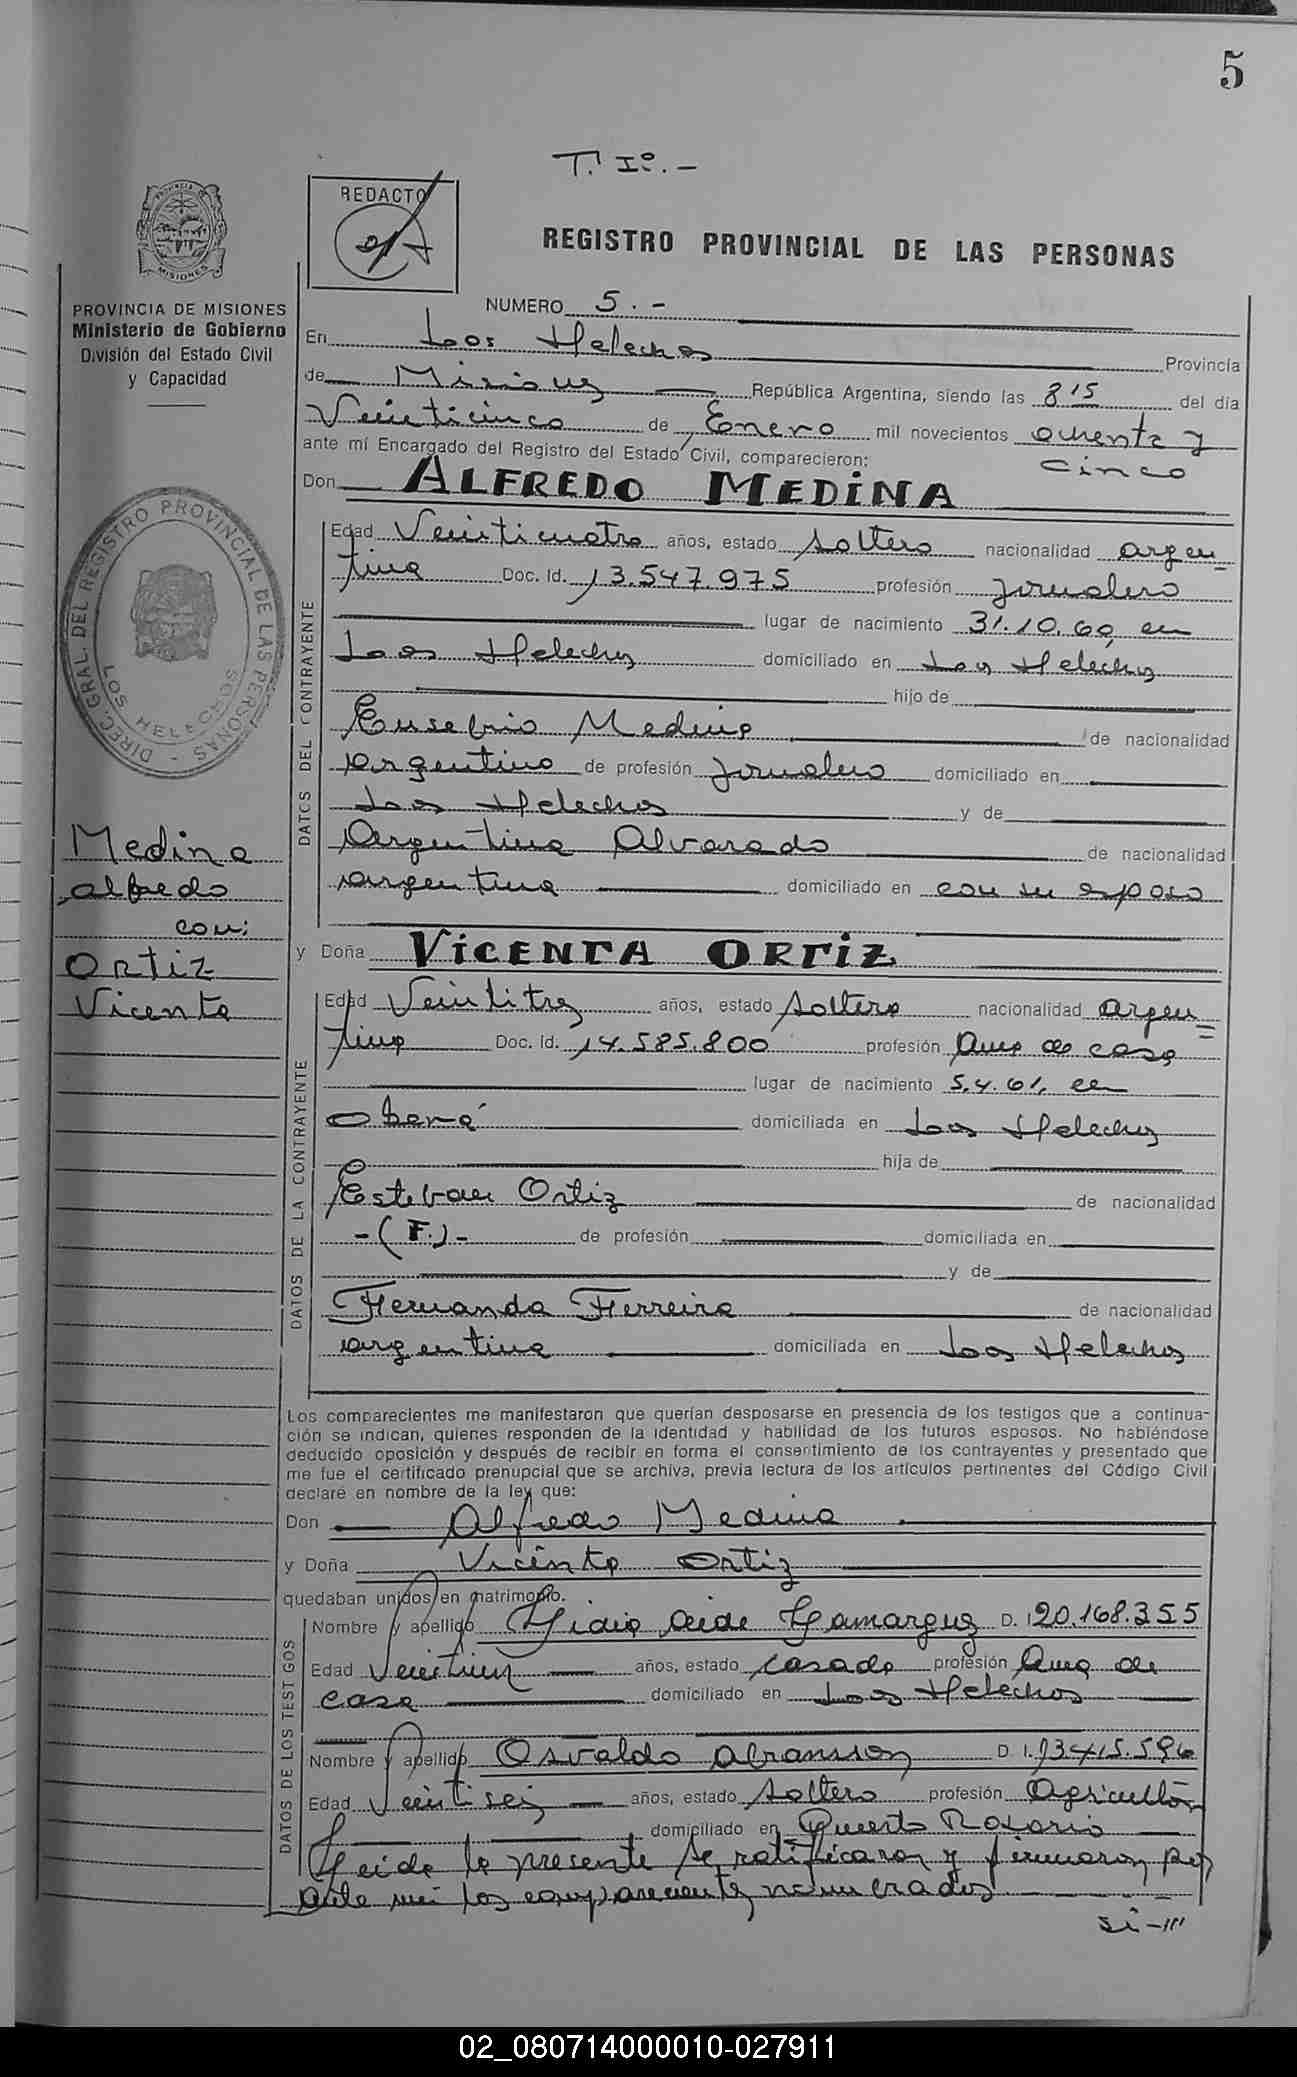 5
T. Iº.-
REDACTO
REGISTRO PROVINCIAL DE LAS PERSONAS
PROVINCIA DE MISIONES
Ministerio de Gobierno
División del Estado Civil
y Capacidad
NUMERO 5.-
En Los Helechos Provincia
de Misiones República Argentina, siendo las 8 15 del día
Veinticinco de Enero mil novecientos ochenta y
cinco
ante mí Encargado del Registro del Estado Civil, comparecieron:
Don ALFREDO MEDINA
DIREC. GRAL. DEL REGISTRO PROVINCIAL DE LAS PERSONAS -
LOS HELECHOS
Medina
Alfredo
con:
Ortiz
Vicenta
DATOS DEL CONTRAYENTE
Edad Veinticuatro años, estado soltero nacionalidad argen
tina Doc. Id. 13.547.975 profesión jornalero
lugar de nacimiento 31.10.60, en
Los Helechos domiciliado en Los Helechos
hijo de
Eusebio Medina de nacionalidad
argentino de profesión jornalero domiciliado en
Los Helechos y de
Argentina Alvarado de nacionalidad
argentina domiciliado en con su esposo
y Doña VICENTA ORTIZ
DATOS DE LA CONTRAYENTE
Edad Veintitres años, estado soltera nacionalidad argen=
tina Doc. Id. 14.585.800 profesión Ama de casa
lugar de nacimiento 5.4.61, en
Oberá domiciliada en Los Helechos
hija de
Esteban Ortiz de nacionalidad
-(F.)- de profesión domiciliada en
y de
Fernanda Ferreira de nacionalidad
argentina domiciliada en Los Helechos
Los comparecientes me manifestaron que querían desposarse en presencia de los testigos que a continua-
ción se indican, quienes responden de la identidad y habilidad de los futuros esposos. No habiéndose
deducido oposición y después de recibir en forma el consentimiento de los contrayentes y presentado que
me fue el certificado prenupcial que se archiva, previa lectura de los artículos pertinentes del Código Civil
declaré en nombre de la ley que:
Don Alfredo Medina
y Doña Vicenta Ortiz
quedaban unidos en matrimonio.
DATOS DE LOS TESTIGOS
Nombre y apellido Lidia D. I. 20.168.355
Edad Veintiun años, estado casada profesión Ama de
casa domiciliado en Los Helechos
Nombre y apellido Osvaldo Abransson D. I. 13415.596
Edad Veintiseis años, estado soltero profesión Agricultor
domiciliado en Puerto Rosario
Leida la presente se ratificaron y firmaron por
ante mi los comparecientes nomencrados
02_080714000010-027911